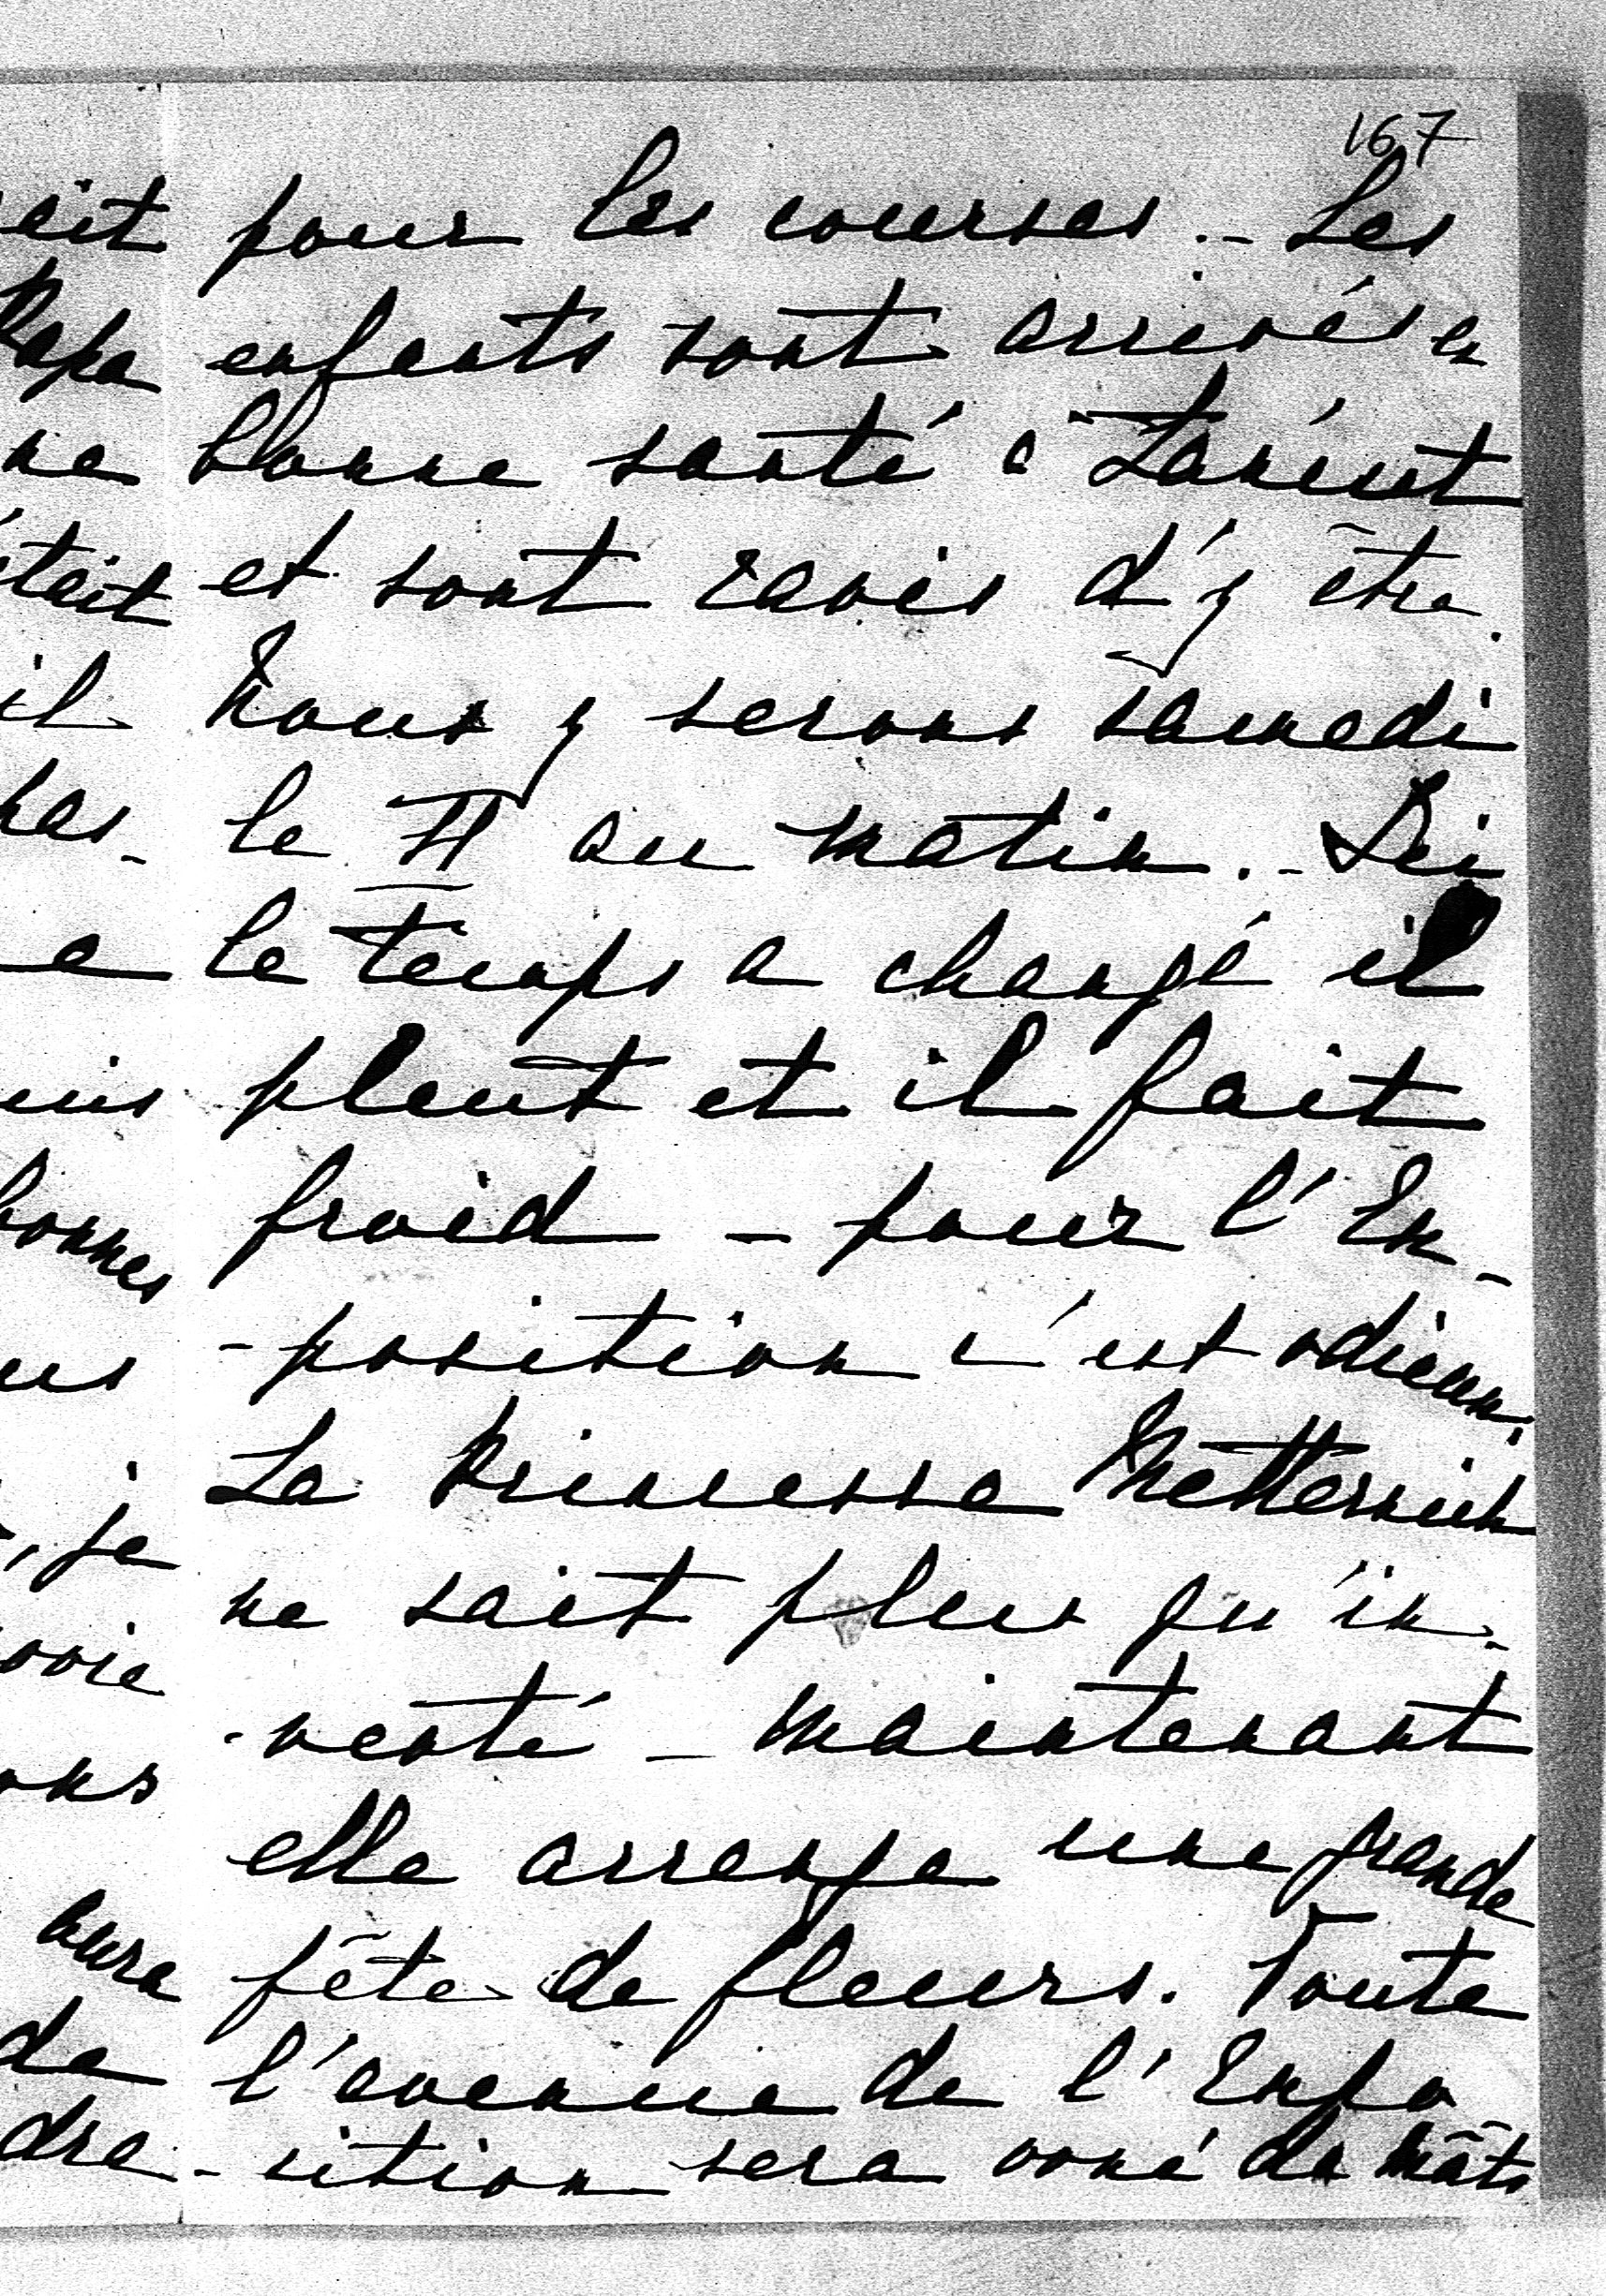 167
pour les courses. - Les
enfants sont arrivés en
bonne santé à Lancut
et sont ravis d'y être.
Nous y serons samedi
le 11 au matin. - Ici
le temps a changé il
pleut et il fait
froid - pour l'Ex-
-position c'est odieux.
La Princesse Metternich
ne sait plus qu'in-
-venté - maintenant
elle arrange une grande
fête de fleurs. Toute
l'avenue de l'Expo
-sition sera orné de mâts